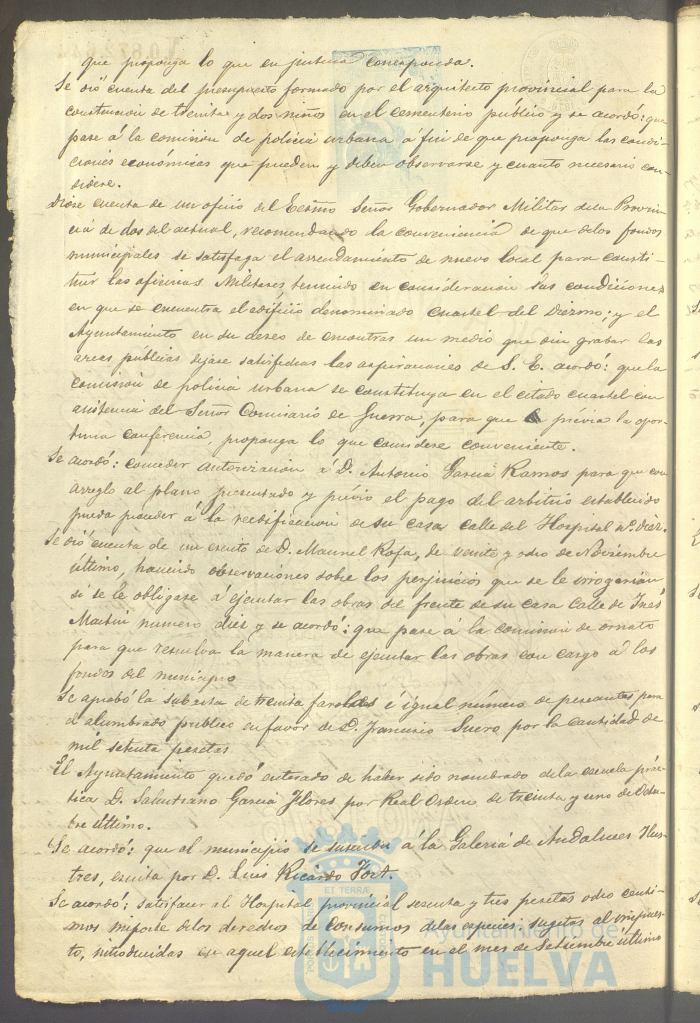 que proponga lo que en justicia corresponda.
Se dió cuenta del presupuesto formado por el arquitecto provincial para la
construccion de treinta y dos niños en el cementerio publico y se acordó: que
pase á la comision de policia urbana a fin de que proponga las condi-
ciones económicas que pueden y deben observarse y cuanto necesario con-
sidere.
Diose cuenta de un oficio del Ecsmo Señor Gobernador Militar de la Provin-
cia de dos del actual, recomendando la conveniencia de que delos fondos
municipales se satisfaga el arrendamiento de nuevo local para consti-
tuir las oficinas Militares teniendo en consideracion las condiciones
en que se encuentra el edificio denominado cuartel del diezmo; y el
Ayuntamiento en su deseo de encontrar un medio que sin grabar las
arcas publicas dejase satisfechas las aspiraciones de S. E. acordó: que la
comision de policia urbana se constituya en el citado cuartel con
asistencia del Señor Comisario de Guerra, para que prévia la opor-
tuna conferencia, proponga lo que considere conveniente.
Se acordó: conceder autorizacion á D. Antonio Garcia Ramos para que con
arreglo al plano presentado y prévio el pago del arbitrio establecido
pueda proceder á la reedificacion de su casa calle del Hospital nº diez.
Se dió cuenta de un escrito de D. Manuel Rofa, de veinte y ocho de Noviembre
último, haciendo observaciones sobre los perjuicios que se le irrogarian
si se le obligase á ejecutar las obras del frente de su casa calle de Ines
Martin numero diez y se acordó: que pase á la comision de ornato
para que resuelva la manera de ejecutar las obras con cargo á los
fondos del municipio
Se aprobó la subasta de treinta faroles é igual número de pescantes para
el alumbrado publico en favor de D. Francisco Suero por la cantidad de
mil setenta pesetas
El Ayuntamiento quedó enterado de haber sido nombrado de la escuela prác-
tica D. Salustiano Garcia Flores por Real Orden de treinta y uno de Octu-
bre último.
Se acordó: que el municipio se suscriba á la Galeria de Andaluces Ilus-
tres, escrita por D. Luis Ricardo Fort.
Se acordó: satisfacer al Hospital provincial sesenta y tres pesetas ocho centi-
mos importe delos derechos de consumos delas especies sugetas al impues-
to, introducidas en aquel establecimiento en el mes de Setiembre último
Ayuntamiento de
HUELVA